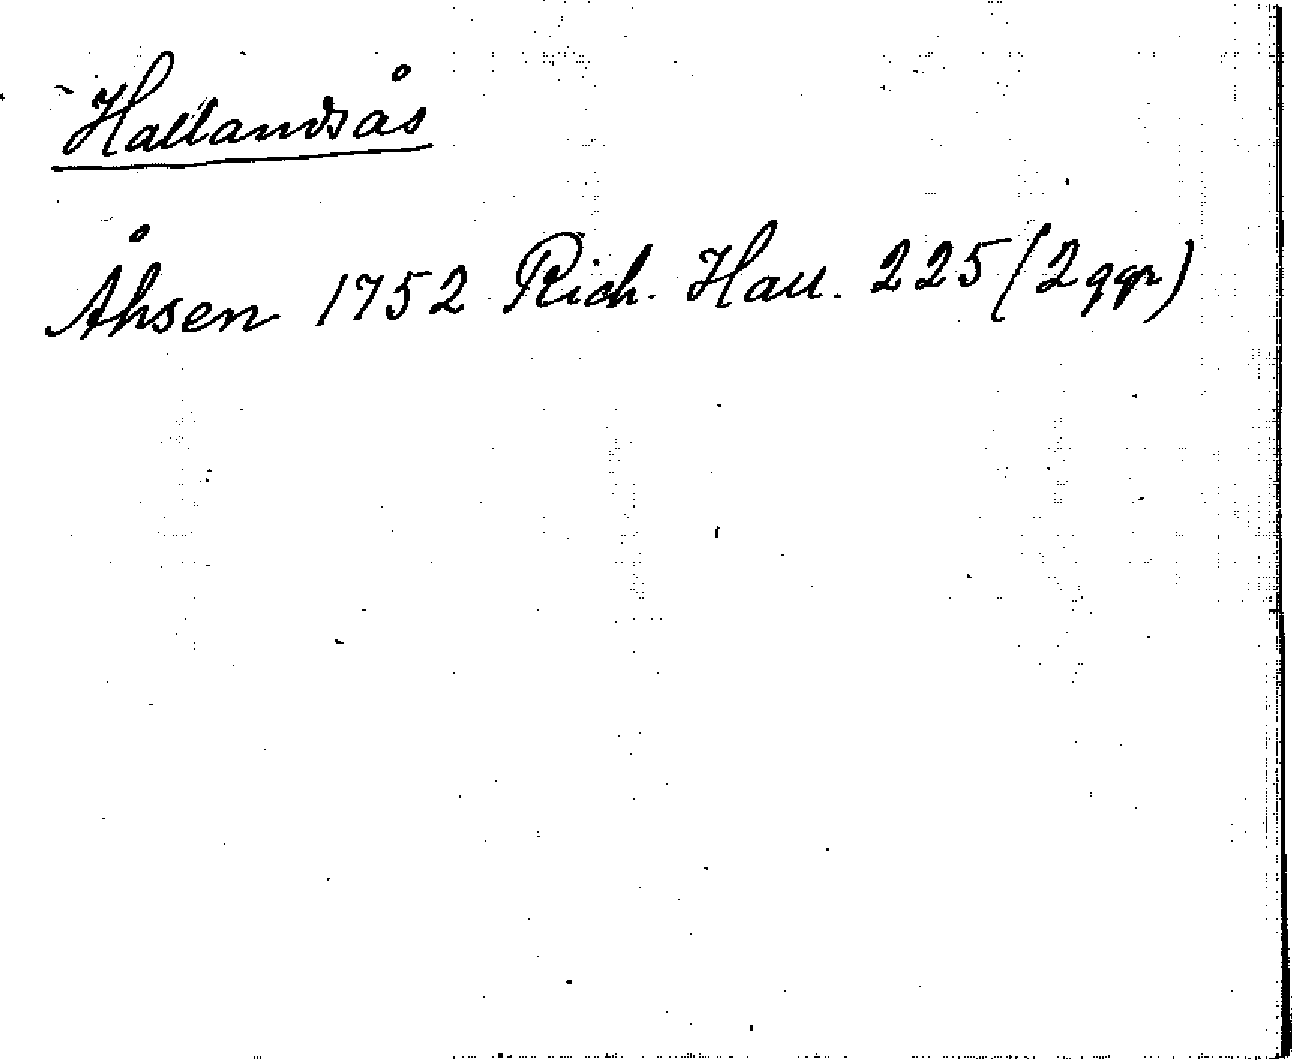 Hallandsås
Åhsen 1752 Rich. Hall. 225 (2 ggr)